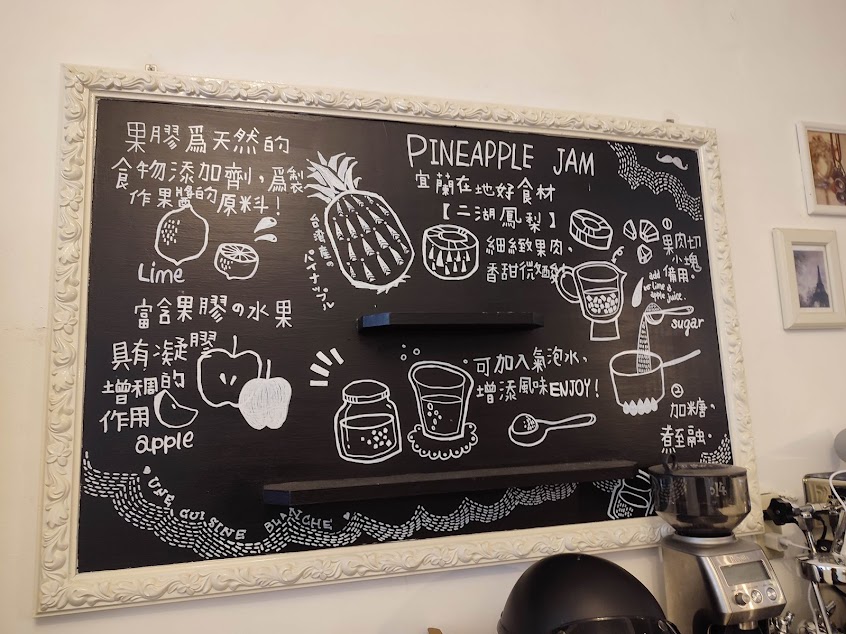 果膠爲天然的
食物添加劑，爲製
作果醬的原料！
Lime
富含果膠の水果
具有凝膠
增稠的
作用
apple
台湾産の
パイナップル
PINEAPPLE JAM
宜蘭在地好食材
【二湖鳳梨】
細緻果肉、
香甜微
① 果肉切
小塊
備用。
add
lime &
apple juice.
sugar
② 加糖、
煮至融。
可加入氣泡水，
增添風味ENJOY！
UNE CUISINE BLANCHE